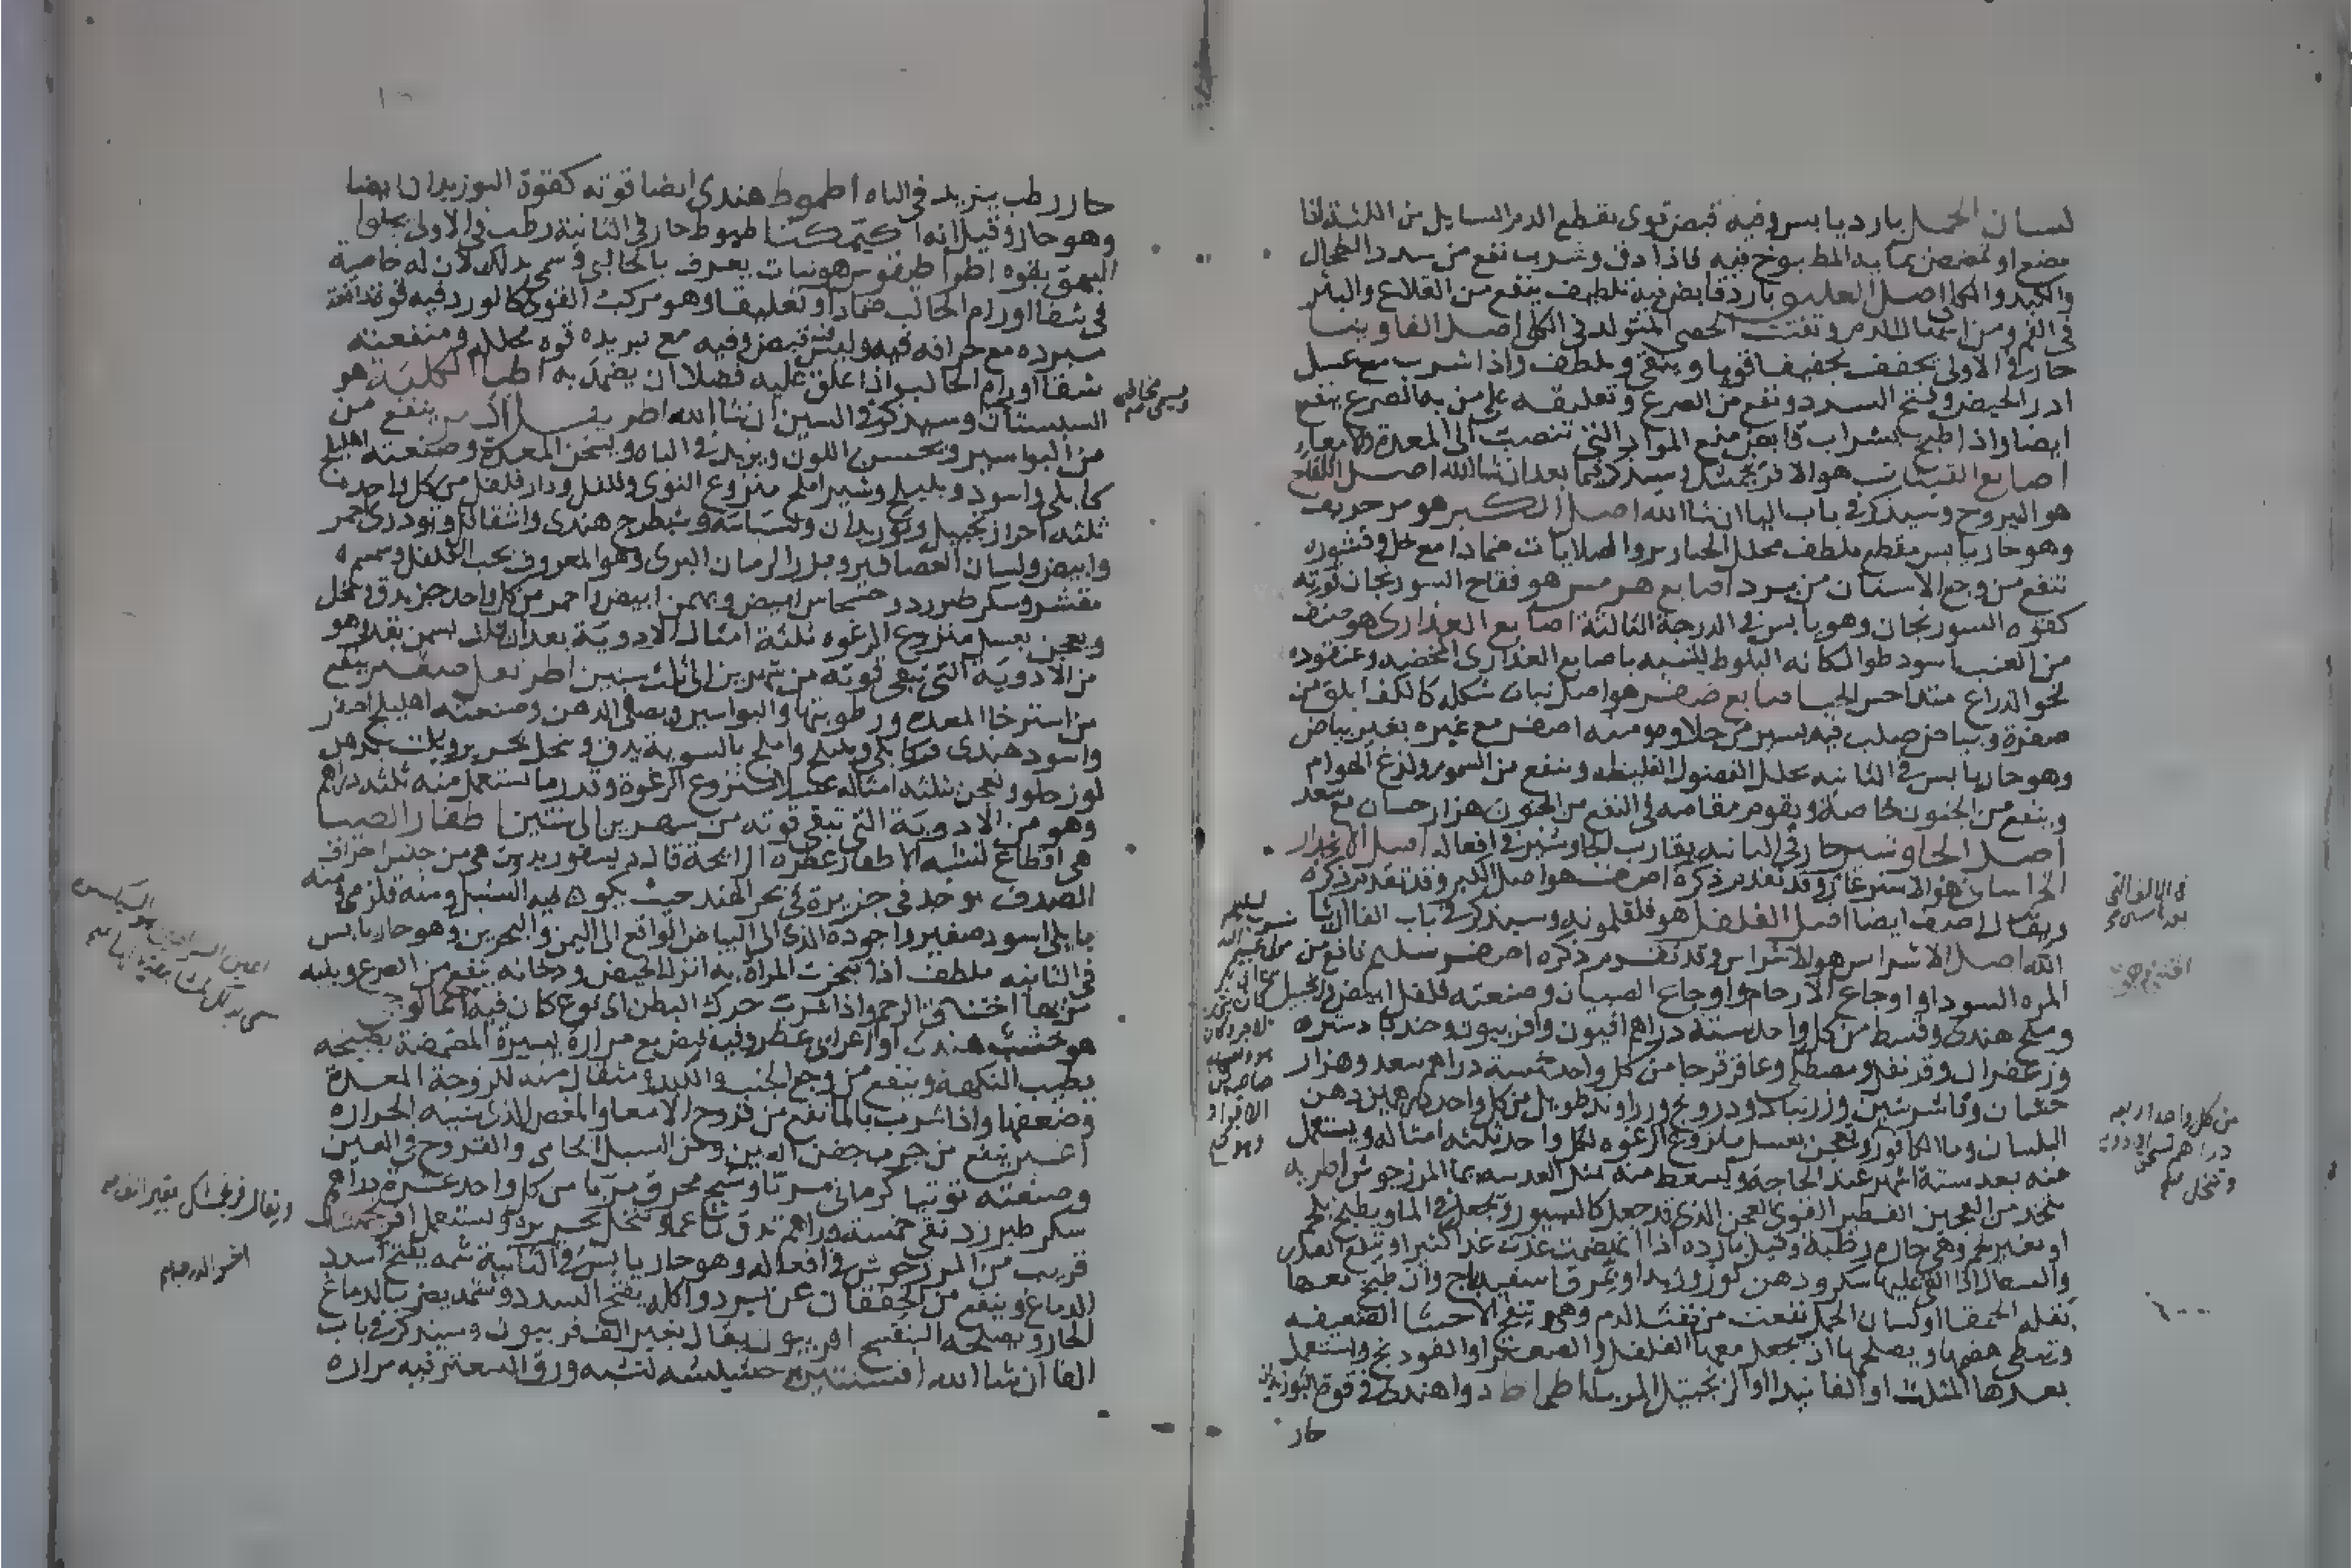 لسان الحمل بارد يابس وفيه قبض قوى يقطع الدم السايل من اللثة اذا
مضغ او تمضمض بمايه المطبوخ فيه فاذا دق وشرب نفع من سدد الطحال
والكبد والكلى اصل العليق بارد قابض فيه تلطيف ينفع من القلاع والبثر
فى الفم ومن انبعاث الدم وتفتت الحصى المتولد فى الكلى اصل الفاوينيا
حار فى الاولى يجفف تجفيفا قويا وينقى ويلطف واذا شرب مع عسل
ادر الحيض وفتح السدد ونفع من الصرع وتعليقه على من به الصرع ينفع
ايضا واذا طبخ بشراب قابض منع المواد التى تنصب الى المعدة والامعاء
اصابع القينات هو الافرنجمشك وسيذكر فيما بعد ان شا الله اصل اللفاح
هو اليبروح وسيذكر فى باب اليا ان شا الله اصل الكبر هو مر حريف
وهو حار يابس مقطع ملطف محلل الجبار والصلابات ضمادا مع خل وقشوره
تنفع من وجع الاسنان من برد اصابع هرمس هو فقاح السورنجان قوته
كقوة السورنجان وهو يابس فى الدرجة الثالثة اصابع العذارى هو صنف
من العنب اسود طوال كانه البلوط يشبه باصابع العذارى المخضبه وعنقوده
نحو الذراع اصابع صفر هو اصل نبات شكله كالكف ابلق من
صفرة وبياض صلب فيه يسير من حلاوة ومنه اصفر مع غبره بغير بياض
وهو حار يابس فى الثانيه يحلل الفضول الغليظه وينفع من السموم ولدغ الهوام
وينفع من الجنون خاصة ويقوم مقامه فى النفع من الجنون هزار جسان مع سعد
اصل الجاوشير حار فى الثانيه يقارب الجاوشير فى افعاله اصل الانجدار
الخراسانى هو الاشترغاز وقد تقدم ذكره اصف هو اصل الكبر وقد تقدم ذكره
ويقال اصف ايضا اصل الفلفل هو فلفلمونه وسيذكر فى باب الفا ان شا
الله اصل الاشراس هو الاشراس وقد تقدم ذكره اصفر سليم نافع من
المره السودا واوجاع الارحام واوجاع الصبيان وصنعته فلفل ابيض وزنجبيل
وملح هندى وقسط من كل واحد ستة دراهم افيون وافربيون وجندبادستره
وزعفران وقرنفل ومصطكى وعاقرقرحا من كل واحد خمسة دراهم سعد وهزار
جشان وفاشرشين وزرنباد ودرونج وزراوند طويل من كل واحد درهمين دهن
البلسان وما الكافور وتعجن بعسل منزوع الرغوه لكل واحد ثلثه امثاله ويستعمل
منه بعد ستة اشهر عند الحاجة ويسعط منه مثل العدسه بما المرزجوش اطريه
يتخذ من العجين الفطير القوى العجن الذى قد جعل كالسيور وتجعل فى الما ويطبخ بلحم
او بغير لحم وهى حاره رطبة وقيل بارده اذا انهضمت غذت غذا كثيرا وتنفع الصدر
والسعال اذا القى عليها سكر ودهن لوز وزبد او مرق اسفيدباج وان طبخ معها
بقله الحمقا او لسان الحمل نفعت من نفث الدم وهى تنفع الاحشا الضعيفه
وتبطى هضمها ويصلحها ان يجعل معها الفلفل والصعتر او الفودنج واستعمل
بعدها المثلث او الفانيد او الزنجبيل المربا اطماط دوا هندى فى قوة البوزيدان
حار
من كل واحد اربعه
دراهم
وتنخل
حار رطب يزيد فى الباه اطموط هندى ايضا قوته كقوة البوزيدان ايضا
وهو حار وقيل انه اكتمكت اطموط حار فى الثانية رطب فى الاولى يجلوا
البهق بقوه اطراطيقوس هو نبات يعرف بالحالبى وسمى بذلك لان له خاصية
فى شفا اورام الحالب ضمادا وتعليقا وهو مركب القوى كالورد فيه قوة
مبرده مع حرافه فيه وليس فيه قبض وفيه مع تبريده قوه محلله ومنفعته
شفا اورام الحالب واذا علق عليه فضلا ان يضمد به اطبا الكلبة هو
السبستان وسيذكر فى السين ان شا الله اطريفل ينفع من
من البواسير ويحسن اللون ويزيد فى الباه ويسخن المعدة وصنعته اهليلج
كابلى واسود وبليلج وشيراملج منزوع النوى وفلفل ودارفلفل من كل واحد
ثلثه اجزا زنجبيل وبوزيدان وبسباسة وشيطرج هندى واشقاقل وتودرى احمر
وابيض ولسان العصافير وبزر الرمان البرى وهو المعروف بحب القلقل وسمسم
مقشر وسكر طبرزد وخشخاش ابيض وبهمن ابيض واحمر من كل واحد جز يدق وينخل
ويعجن بعسل منزوع الرغوه ثلثة امثال الادوية بعد ان يلت بسمن بقرى وهو
من الادوية التى تبقى قوته من شهرين الى ثلث سنين اطريفل صغير ينفع
من استرخا المعده ورطوبتها والبواسير ويصفى الذهن وصنعته اهليلج اصفر
واسود هندى وكابلى وبليلج واملج بالسوية يدق وينخل بحرير ويلت بدهن
لوز حلو ويعجن بثلثه امثاله عسلا منزوع الرغوة وقدر ما يستعمل منه ثلثه دراهم
وهو من الادوية التى تبقى قوته من شهرين الى سنتين اظفار الطيب
هى اقطاع تشبه الاظفار عطره الرايحة قال ديسقوريدوس هى من جنس اطراف
الصدف يوخذ فى جزيرة فى بحر الهند حيث يكون فيه السنبل ومنه قلزمى ومنه
بابلى اسود صغير واجوده الذى الى البياض الواقع الى اليمن والبحرين وهو حار يابس
فى الثانيه ملطف اذا تبخرت المراة به انزل الحيض ودخانه ينفع من الصرع وينبه
من بها اختناق الرحم واذا شرب حرك البطن اى نوع كان فيه اغالوجى
هو خشب هندى او اعرابى عطر وفيه قبض مع مرارة يسيرة المضمضة بطبيخه
يطيب النكهة وينفع من وجع الجنب والكبد ومثقال منه للزوجة المعدة
وضعفها واذا شرب بالما نفع من قروح الامعا والمغص الذى سببه الحراره
اغبر ينفع من جرب جفن العين ومن السبل الحامى والقروح فى العين
وصنعته توتيا كرمانى مربا وشيح محرق مربا من كل واحد عشرة دراهم
سكر طبرزد نقى خمسة دراهم تدق ناعما وتنخل بحريرة وتستعمل افرنجمشك
قريب من المرزجوش فى افعاله وهو حار يابس فى الثانية شمه يفتح سدد
الدماغ وينفع من الخفقان عن برد واكله يفتح السدد وشمه يضر بالدماغ
الحار ويصلحه البنفسج افربيون يقال بغير الف فربيون وسيذكر فى باب
الفا ان شا الله افسنتين حشيشه تشبه ورق السعتر فيه مراره